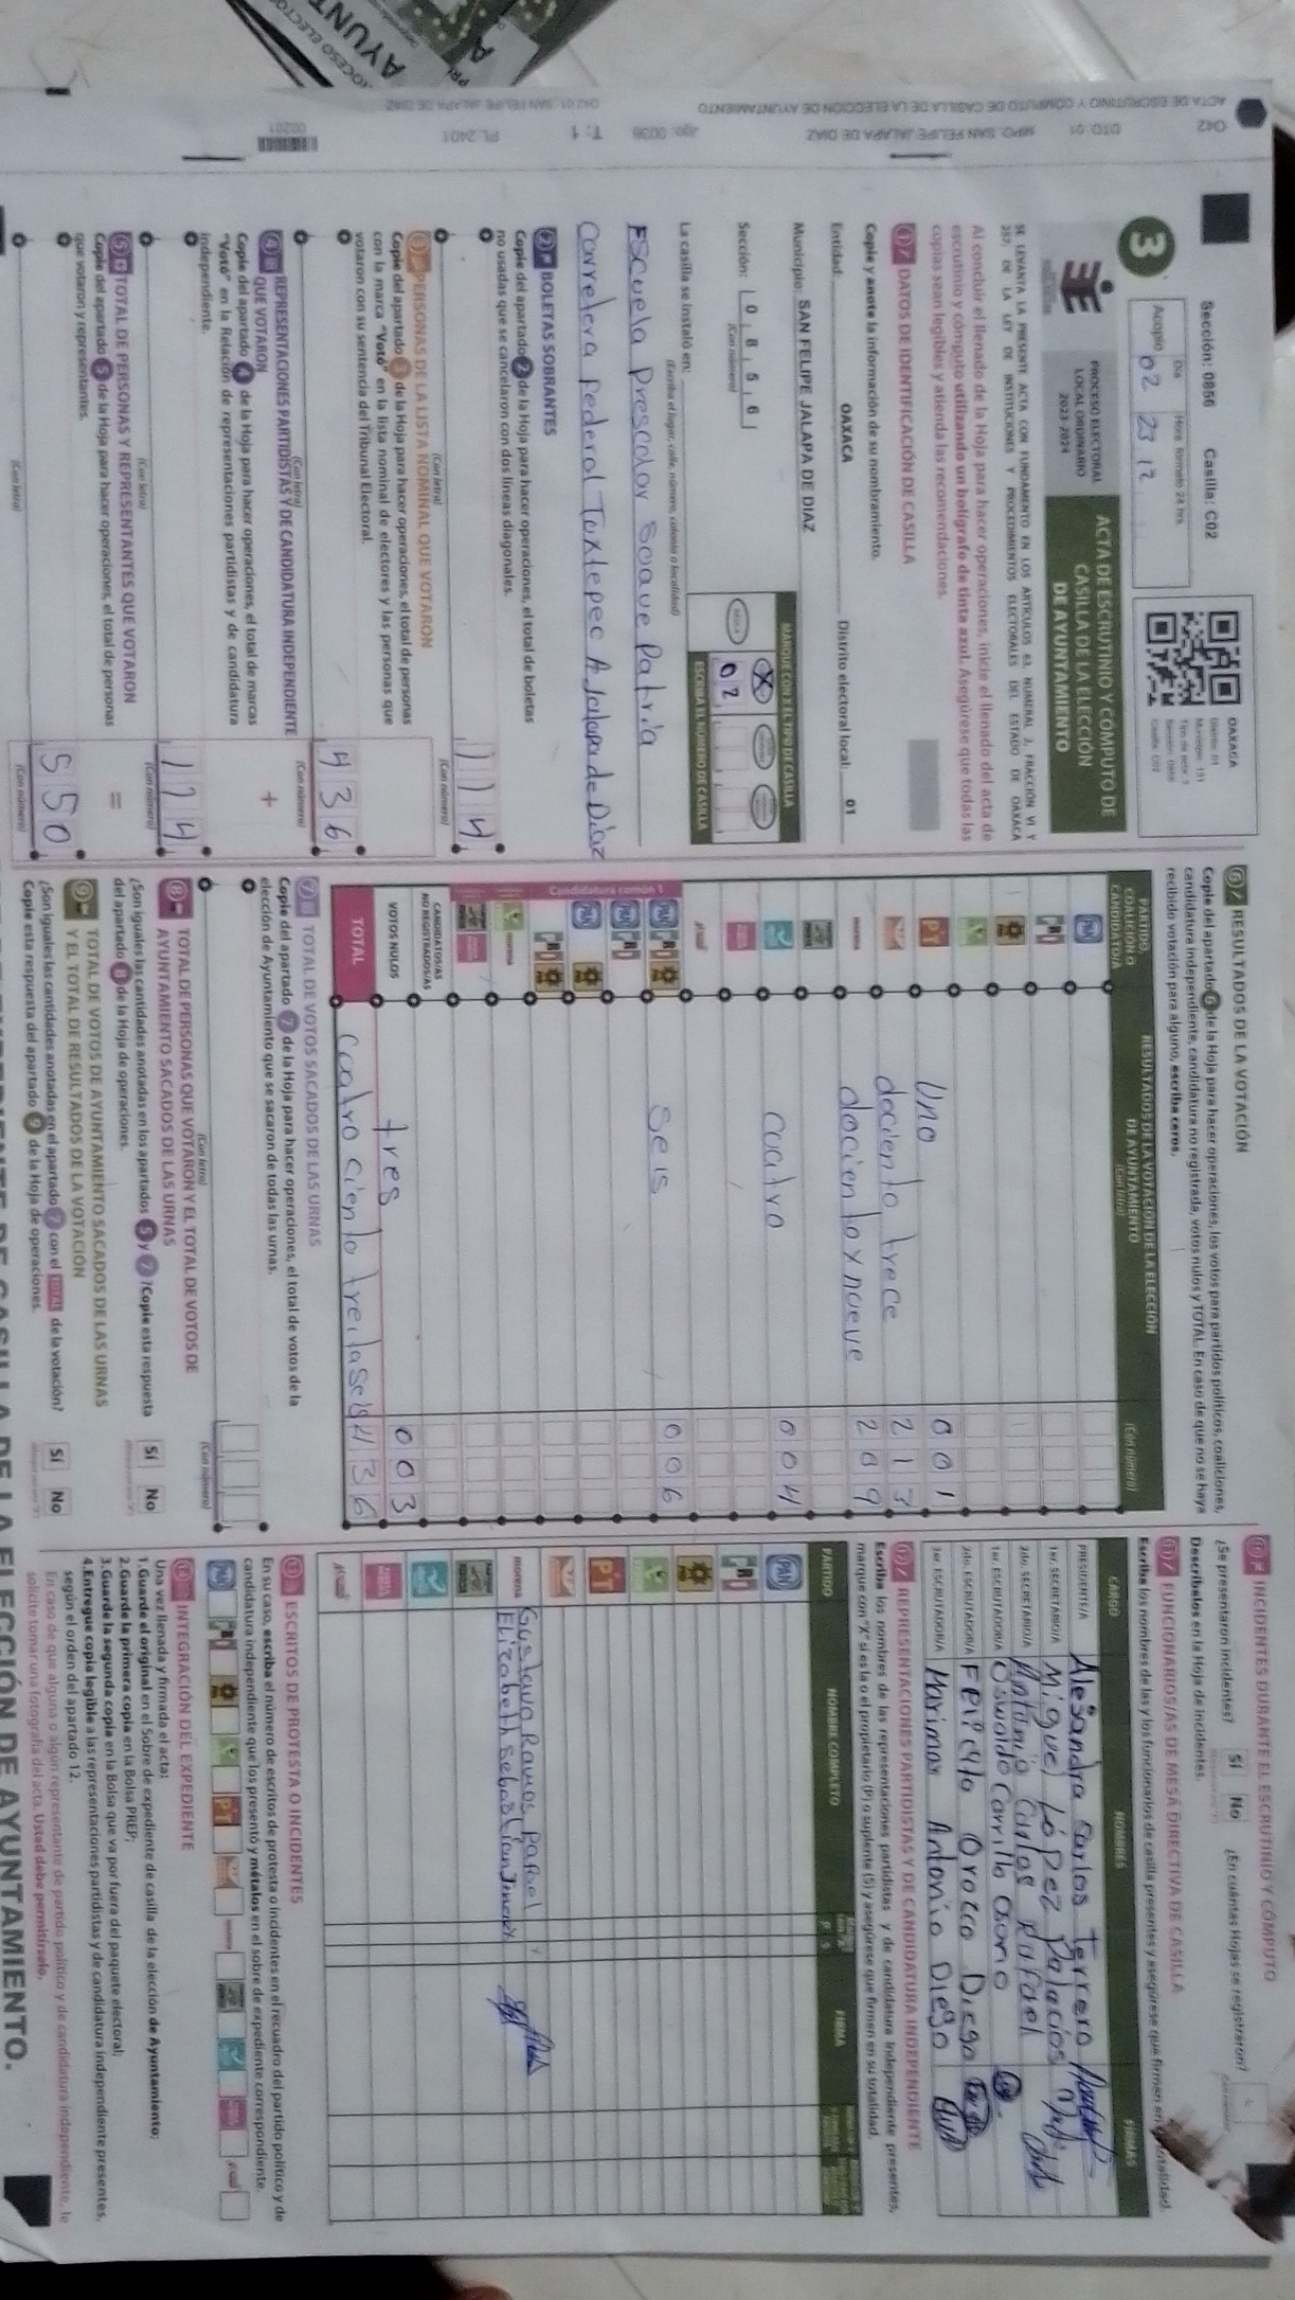 ACTA DE ESCRUTINIO Y CÓMPUTO DE CASILLA DE LA ELECCIÓN DE AYUNTAMIENTO
042 DTO: 01 MPO: SAN FELIPE JALAPA DE DIAZ T: 1 PL 2401
00201
Sección: 0856 Casilla: C02
Día Hora formato 24 hrs.
Acopio 02 23 12
OAXACA
3
PROCESO ELECTORAL
LOCAL ORDINARIO
2023-2024
ACTA DE ESCRUTINIO Y CÓMPUTO DE
CASILLA DE LA ELECCIÓN
DE AYUNTAMIENTO
SE LEVANTA LA PRESENTE ACTA CON FUNDAMENTO EN LOS ARTÍCULOS 63, NUMERAL 2, FRACCIÓN VI Y
257, DE LA LEY DE INSTITUCIONES Y PROCEDIMIENTOS ELECTORALES DEL ESTADO DE OAXACA
Al concluir el llenado de la Hoja para hacer operaciones, inicie el llenado del acta de
escrutinio y cómputo utilizando un bolígrafo de tinta azul. Asegúrese que todas las
copias sean legibles y atienda las recomendaciones.
1 DATOS DE IDENTIFICACIÓN DE CASILLA
Copie y anote la información de su nombramiento.
Entidad: OAXACA Distrito electoral local: 01
Municipio: SAN FELIPE JALAPA DE DIAZ
MARQUE CON X EL TIPO DE CASILLA
X
Sección: 0 8 5 6
(Con número)
02
ESCRIBA EL NÚMERO DE CASILLA
La casilla se instaló en:
(Escriba el lugar, calle, número, colonia o localidad)
Escuela Prescolar Soave Patria
Carretera Federal Tuxtepec A Jalapa de Díaz
2 BOLETAS SOBRANTES
Copie del apartado 2 de la Hoja para hacer operaciones, el total de boletas
no usadas que se cancelaron con dos líneas diagonales.
114
(Con letra) (Con número)
3 PERSONAS DE LA LISTA NOMINAL QUE VOTARON
Copie del apartado 3 de la Hoja para hacer operaciones, el total de personas
con la marca "Votó" en la lista nominal de electores y las personas que
votaron con su sentencia del Tribunal Electoral.
436
(Con letra) (Con número)
4 REPRESENTACIONES PARTIDISTAS Y DE CANDIDATURA INDEPENDIENTE
QUE VOTARON +
Copie del apartado 4 de la Hoja para hacer operaciones, el total de marcas
"Votó" en la Relación de representaciones partidistas y de candidatura
independiente.
114
(Con letra) (Con número)
5 TOTAL DE PERSONAS Y REPRESENTANTES QUE VOTARON =
Copie del apartado 5 de la Hoja para hacer operaciones, el total de personas
que votaron y representantes.
550
(Con letra) (Con número)
6 RESULTADOS DE LA VOTACIÓN
Copie del apartado 6 de la Hoja para hacer operaciones, los votos para partidos políticos, coaliciones,
candidatura independiente, candidatura no registrada, votos nulos y TOTAL. En caso de que no se haya
recibido votación para alguno, escriba ceros.
PARTIDO, COALICIÓN O CANDIDATO/A
RESULTADOS DE LA VOTACIÓN DE LA ELECCIÓN
DE AYUNTAMIENTO
(Con letra) (Con número)
PAN
PRI
PRD
PT Uno 001
dociento trece 213
morena dociento y nueve 209
cuatro 004
Candidatura común 1
PAN PRI PRD seis 006
PAN PRI
PAN PRD
PRI PRD
morena
CANDIDATOS/AS NO REGISTRADOS/AS
VOTOS NULOS tres 003
TOTAL cuatro ciento treitaseis 436
7 TOTAL DE VOTOS SACADOS DE LAS URNAS
Copie del apartado 7 de la Hoja para hacer operaciones, el total de votos de la
elección de Ayuntamiento que se sacaron de todas las urnas.
(Con letra) (Con número)
8 TOTAL DE PERSONAS QUE VOTARON Y EL TOTAL DE VOTOS DE
AYUNTAMIENTO SACADOS DE LAS URNAS
¿Son iguales las cantidades anotadas en los apartados 5 y 7? Copie esta respuesta
del apartado 8 de la Hoja de operaciones. SÍ No
9 TOTAL DE VOTOS DE AYUNTAMIENTO SACADOS DE LAS URNAS
Y EL TOTAL DE RESULTADOS DE LA VOTACIÓN
¿Son iguales las cantidades anotadas en el apartado 7 con el TOTAL de la votación?
Copie esta respuesta del apartado 9 de la Hoja de operaciones. SÍ No
10 INCIDENTES DURANTE EL ESCRUTINIO Y CÓMPUTO
¿Se presentaron incidentes? SÍ No ¿En cuántas Hojas se registraron?
Descríbalos en la Hoja de incidentes.
11 FUNCIONARIOS/AS DE MESA DIRECTIVA DE CASILLA
Escriba los nombres de las y los funcionarios de casilla presentes y asegúrese que firmen en su totalidad.
CARGO NOMBRES FIRMAS
PRESIDENTE/A Alesandra Carlos Terrero
1er. SECRETARIO/A Miguel López Palacios
2do. SECRETARIO/A Antonio Carlos Rafael
1er. ESCRUTADOR/A Oswaldo Carrillo Osorio
2do. ESCRUTADOR/A Felicita Orozco Diego
3er. ESCRUTADOR/A Marimar Antonio Diego
12 REPRESENTACIONES PARTIDISTAS Y DE CANDIDATURA INDEPENDIENTE
Escriba los nombres de las representaciones partidistas y de candidatura independiente presentes,
marque con "X" si es la o el propietario (P) o suplente (S) y asegúrese que firmen en su totalidad.
PARTIDO NOMBRE COMPLETO P S FIRMA
PAN
PRI
PRD
PT
morena Gustavo Ramos Pafael
Elizabeth Sebastian Jimenez
13 ESCRITOS DE PROTESTA O INCIDENTES
En su caso, escriba el número de escritos de protesta o incidentes en el recuadro del partido político y de
candidatura independiente que los presentó y métalos en el sobre de expediente correspondiente.
PAN PRI PRD PT morena
14 INTEGRACIÓN DEL EXPEDIENTE
Una vez llenada y firmada el acta:
1.Guarde el original en el Sobre de expediente de casilla de la elección de Ayuntamiento;
2.Guarde la primera copia en la Bolsa PREP;
3.Guarde la segunda copia en la Bolsa que va por fuera del paquete electoral;
4.Entregue copia legible a las representaciones partidistas y de candidatura independiente presentes,
según el orden del apartado 12.
En caso de que alguna o algún representante de partido político y de candidatura independiente, le
solicite tomar una fotografía del acta. Usted debe permitírselo.
DE CASILLA DE LA ELECCIÓN DE AYUNTAMIENTO.